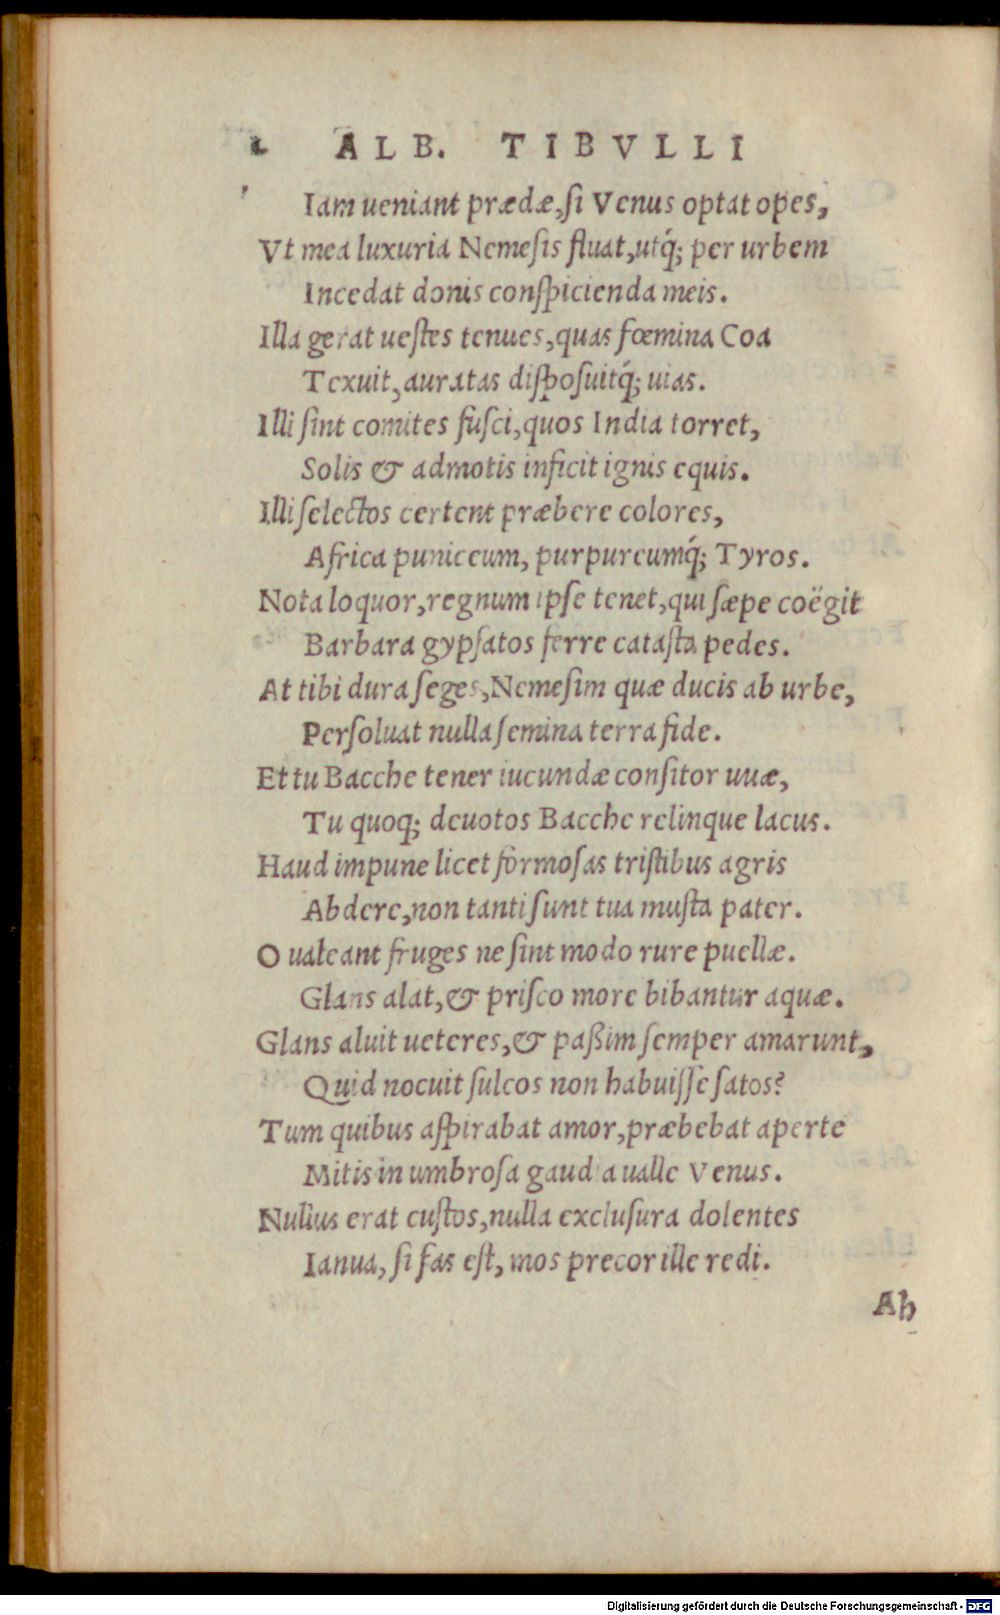 ALB. TIBVLLI
Iam ueniant prædæ, ſi Venus optat opes,
Vt mea luxuria Nemeſis fluat, utq́; per urbem
Incedat donis conſpicienda meis.
Illa gerat ueſtes tenues, quas fœmina Coa
Texuit, auratas diſpoſuitq́; uias.
Illi ſint comites fuſci, quos India torret,
Solis & admotis inficit ignis equis.
Illi ſelectos certent præbere colores,
Africa puniceum, purpureumq́; Tyros.
Nota loquor, regnum ipſe tenet, qui ſæpe coëgit
Barbara gypſatos ferre cataſta pedes.
At tibi dura ſeges, Nemeſim quæ ducis ab urbe,
Perſoluat nulla ſemina terra fide.
Et tu Bacche tener iucundæ conſitor uuæ,
Tu quoq; deuotos Bacche relinque lacus.
Haud impune licet formoſas triſtibus agris
Abdere, non tanti ſunt tua muſta pater.
O ualeant fruges ne ſint modo rure puellæ.
Glans alat, & priſco more bibantur aquæ.
Glans aluit ueteres, & paßim ſemper amarunt,
Quid nocuit ſulcos non habuiſſe ſatos?
Tum quibus aſpirabat amor, præbebat aperte
Mitis in umbroſa gaudia ualle Venus.
Nullus erat cuſtos, nulla excluſura dolentes
Ianua, ſi fas eſt, mos precor ille redi.
Ab
Digitalisierung gefördert durch die Deutsche Forschungsgemeinschaft - DFG